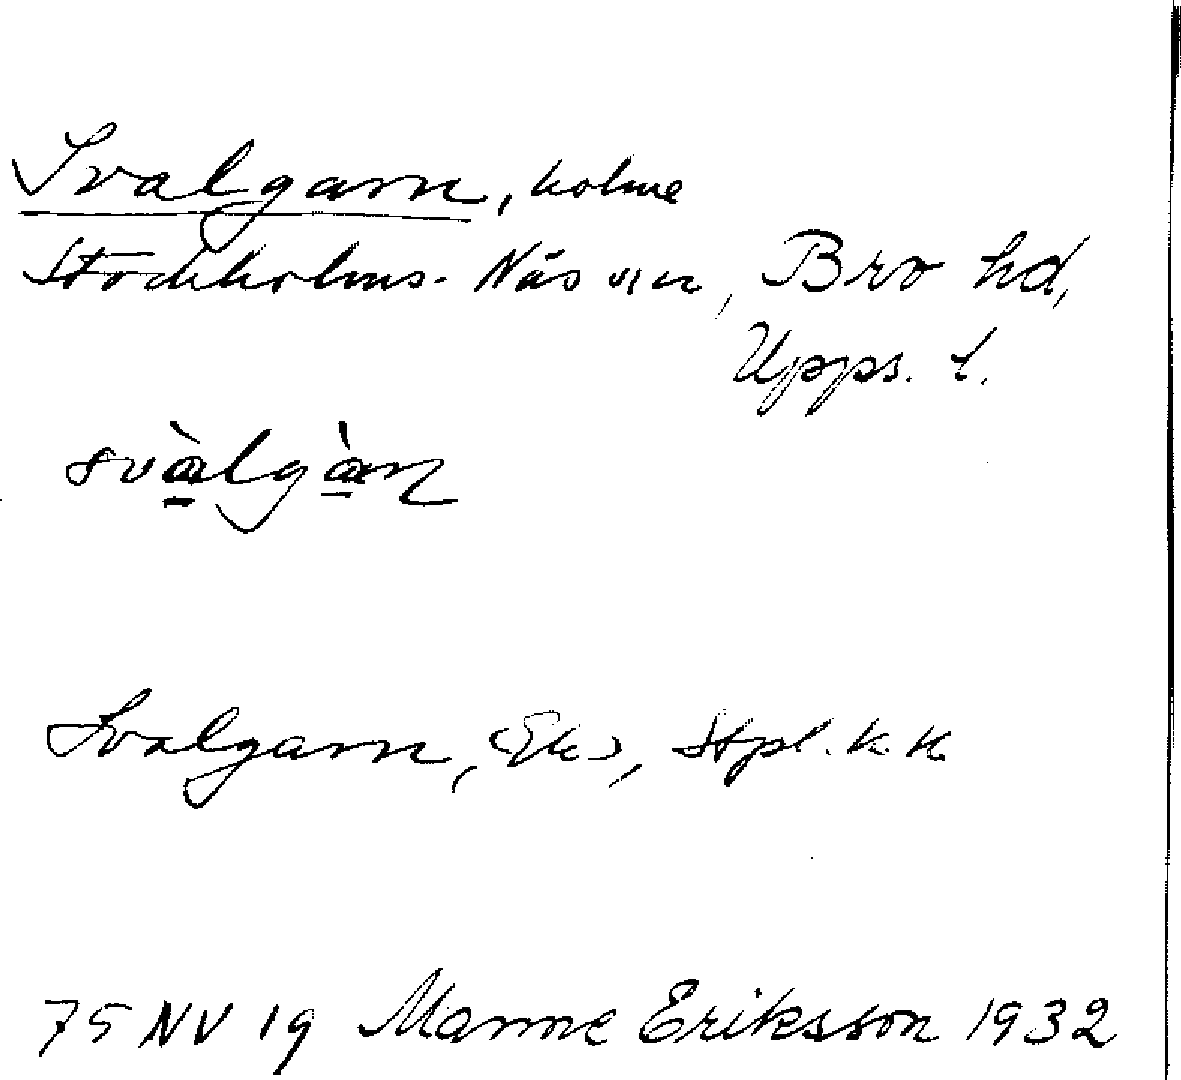 Svalgarn, holme
Stockholms-Näs sn, Bro hd,
Upps. l.
svàlgàn
Svalgarn, (Ek), Stpl. k K
75 NV 19 Manne Eriksson 1932